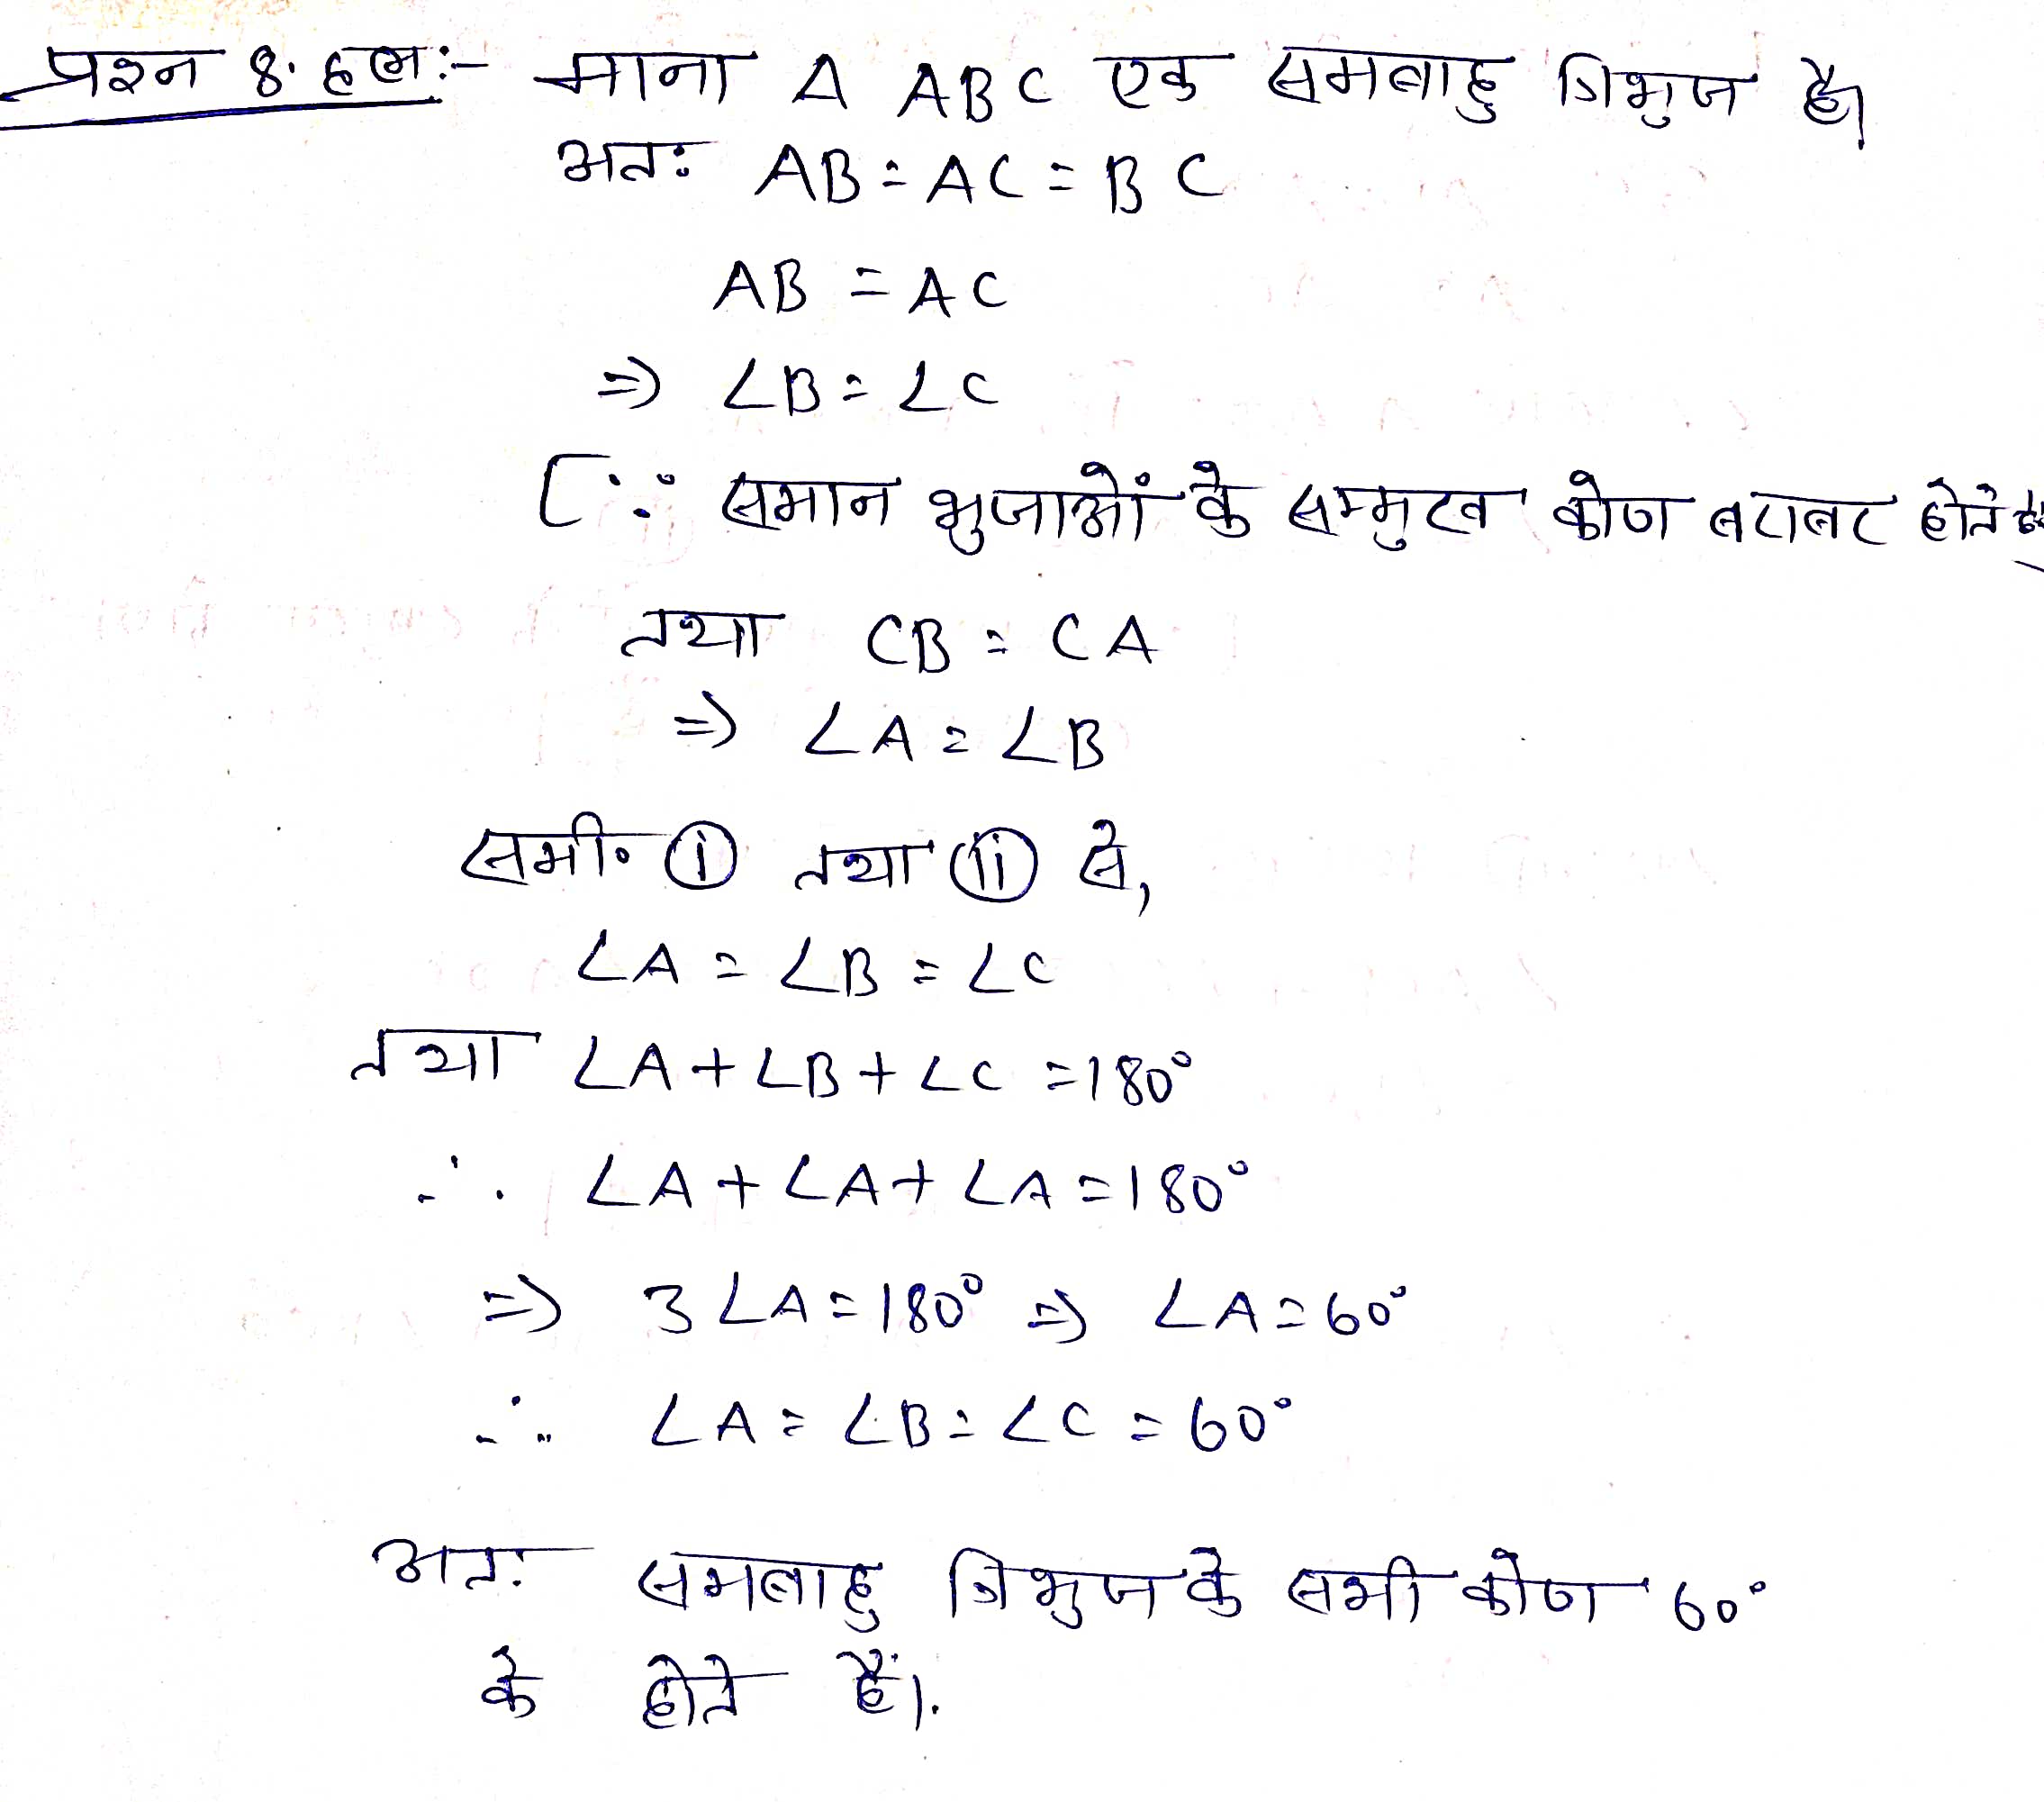 प्रश्न 8. हल:- माना Δ ABC एक समबाहु त्रिभुज है।
अतः AB = AC = BC
AB = AC
⇒ ∠B = ∠C
[∵ समान भुजाओं के सम्मुख कोण बराबर होते हैं
तथा CB = CA
⇒ ∠A = ∠B
समी० (i) तथा (ii) से,
∠A = ∠B = ∠C
तथा ∠A + ∠B + ∠C = 180°
∴ ∠A + ∠A + ∠A = 180°
⇒ 3 ∠A = 180° ⇒ ∠A = 60°
∴ ∠A = ∠B = ∠C = 60°
अतः समबाहु त्रिभुज के सभी कोण 60°
के होते हैं।